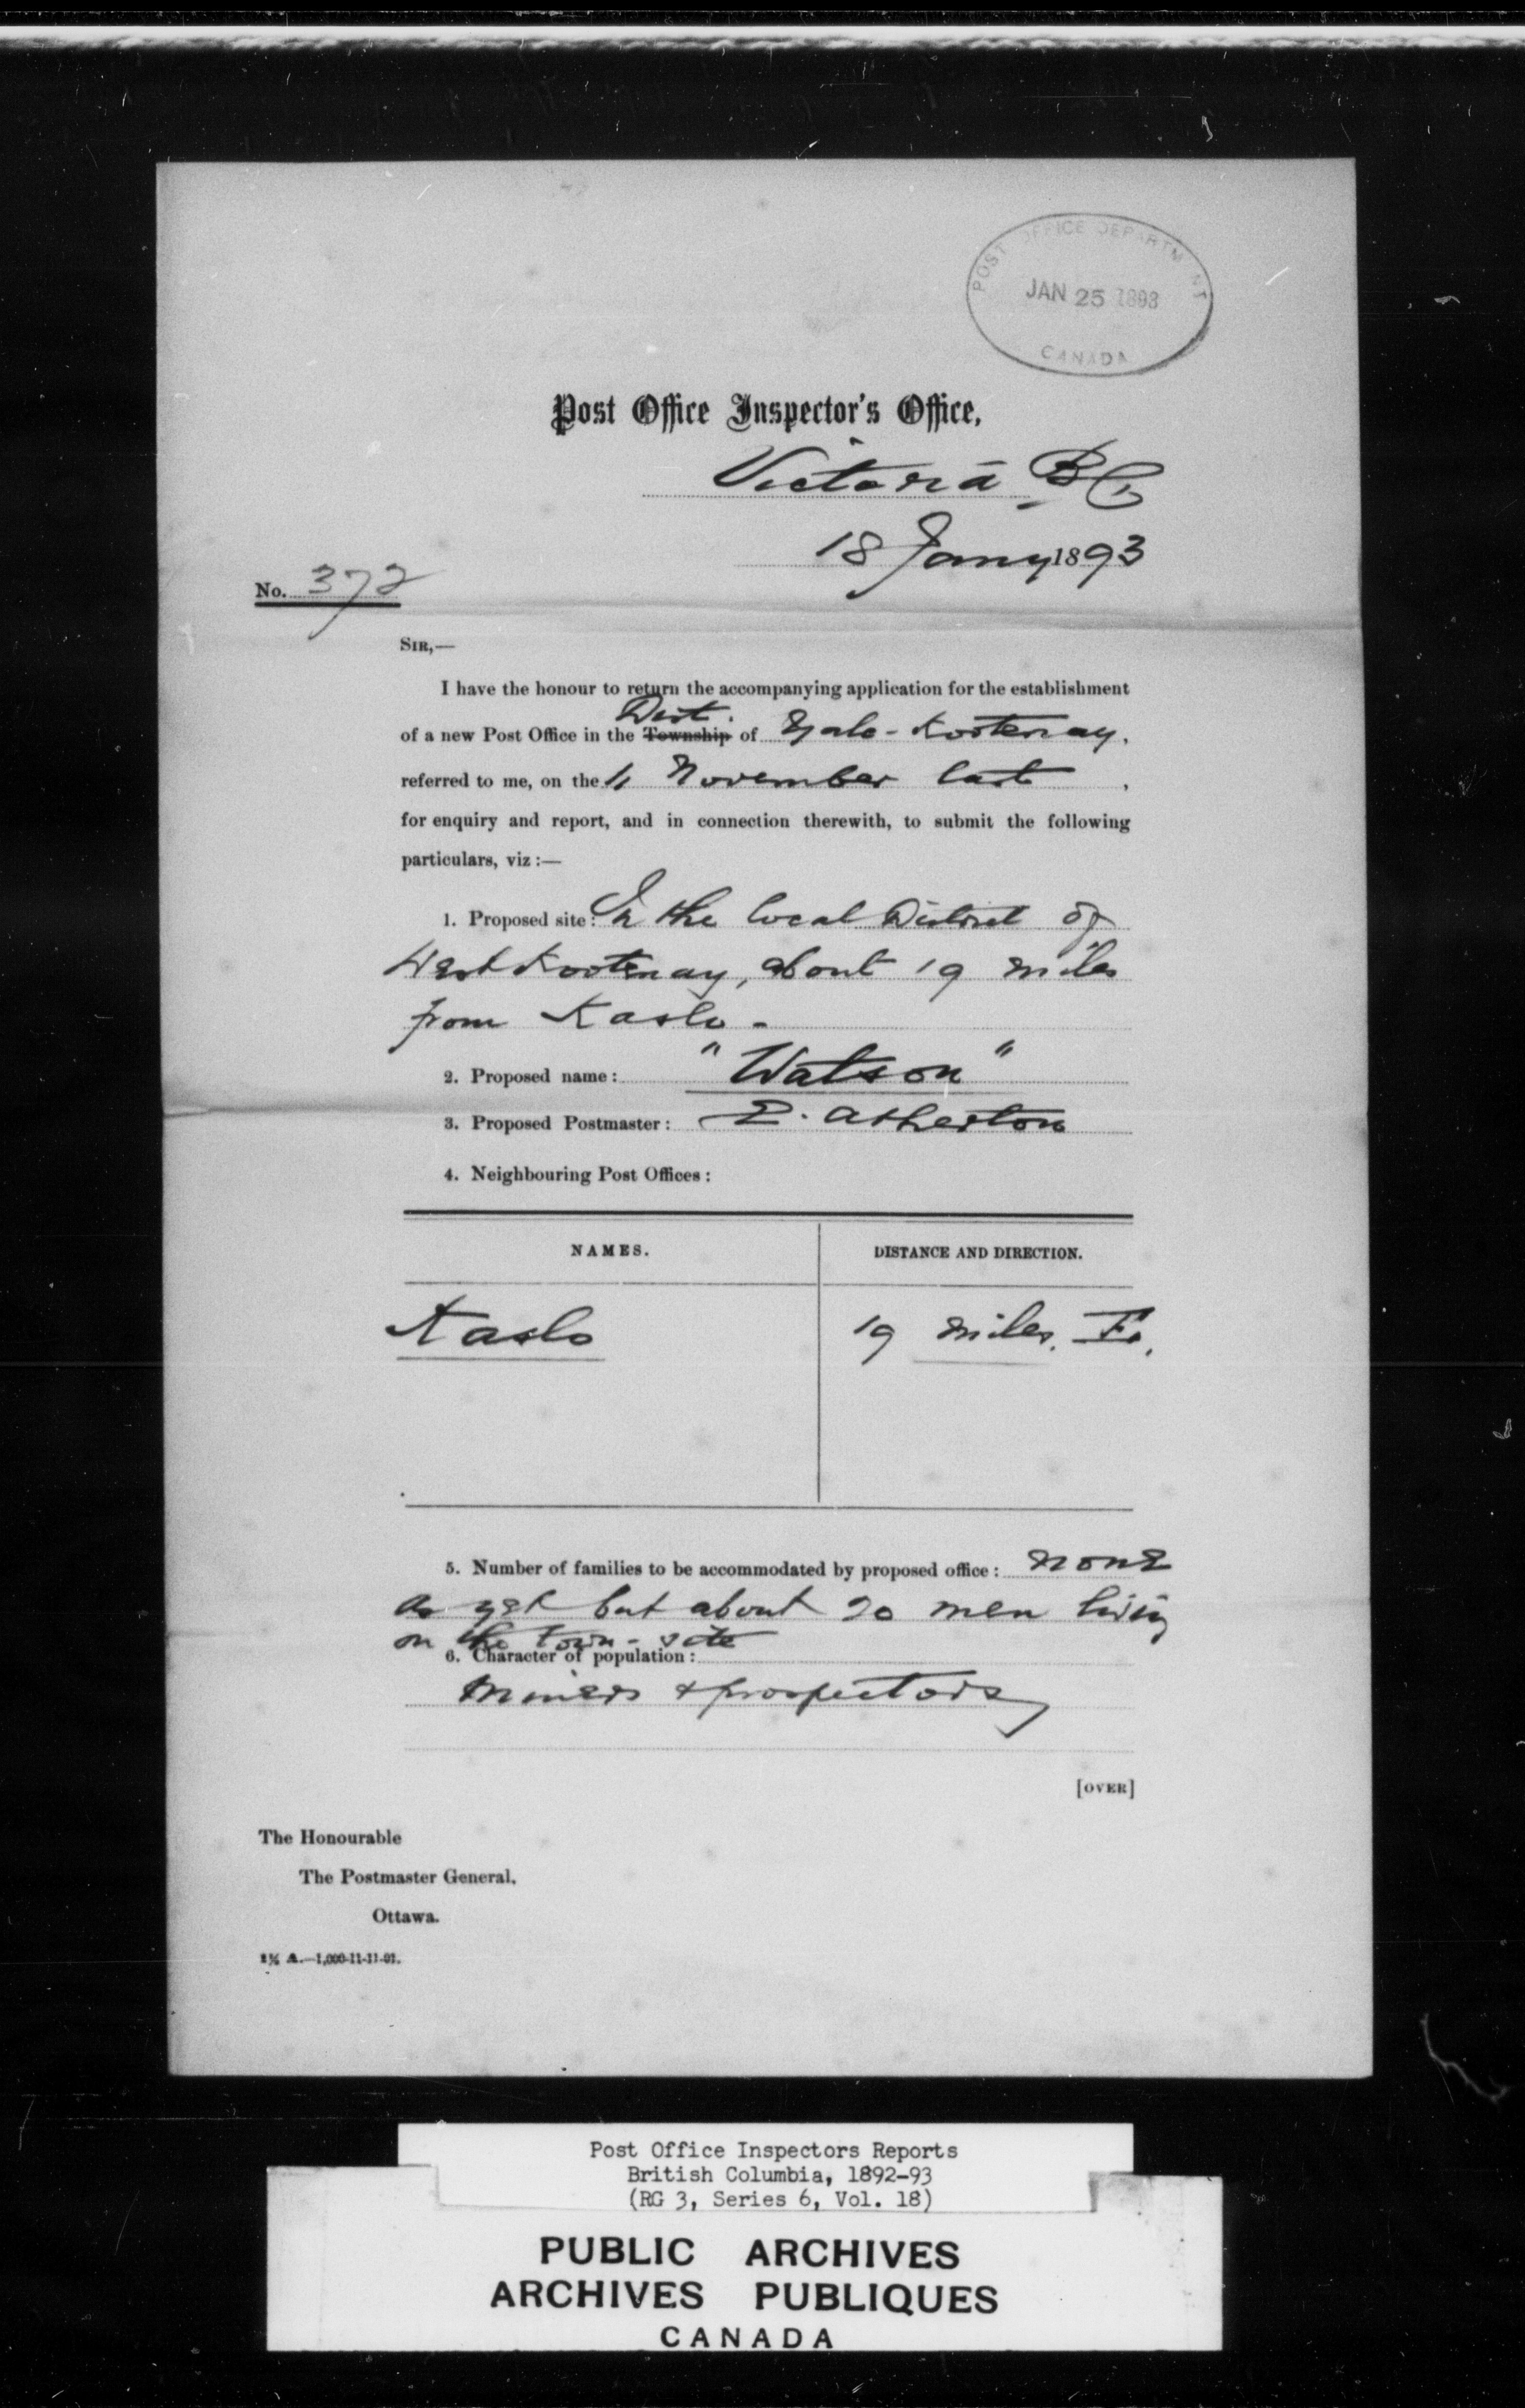 POST OFFICE DEPARTMENT
JAN 25 1893
CANADA
Post Office Inspector's Office,
Victoria B C
18 Jany 1893
No. 372
SIR,—
I have the honour to return the accompanying application for the establishment
Dist.
of a new Post Office in the Township of Yale-Kootenay,
referred to me, on the November last,
for enquiry and report, and in connection therewith, to submit the following
particulars, viz :—
1. Proposed site: In the local District of
West Kootenay, about 19 miles
from Kaslo -
2. Proposed name: "Watson"
3. Proposed Postmaster: E. Atherton
4. Neighbouring Post Offices:
NAMES. DISTANCE AND DIRECTION.
Kaslo 19 miles. E.
5. Number of families to be accommodated by proposed office: none
as yet but about 20 men living
on the town-site
6. Character of population:
Miners & prospectors
[OVER]
The Honourable
The Postmaster General,
Ottawa.
A.—1,000-11-11-91.
Post Office Inspectors Reports
British Columbia, 1892-93
(RG 3, Series 6, Vol. 18)
PUBLIC ARCHIVES
ARCHIVES PUBLIQUES
CANADA